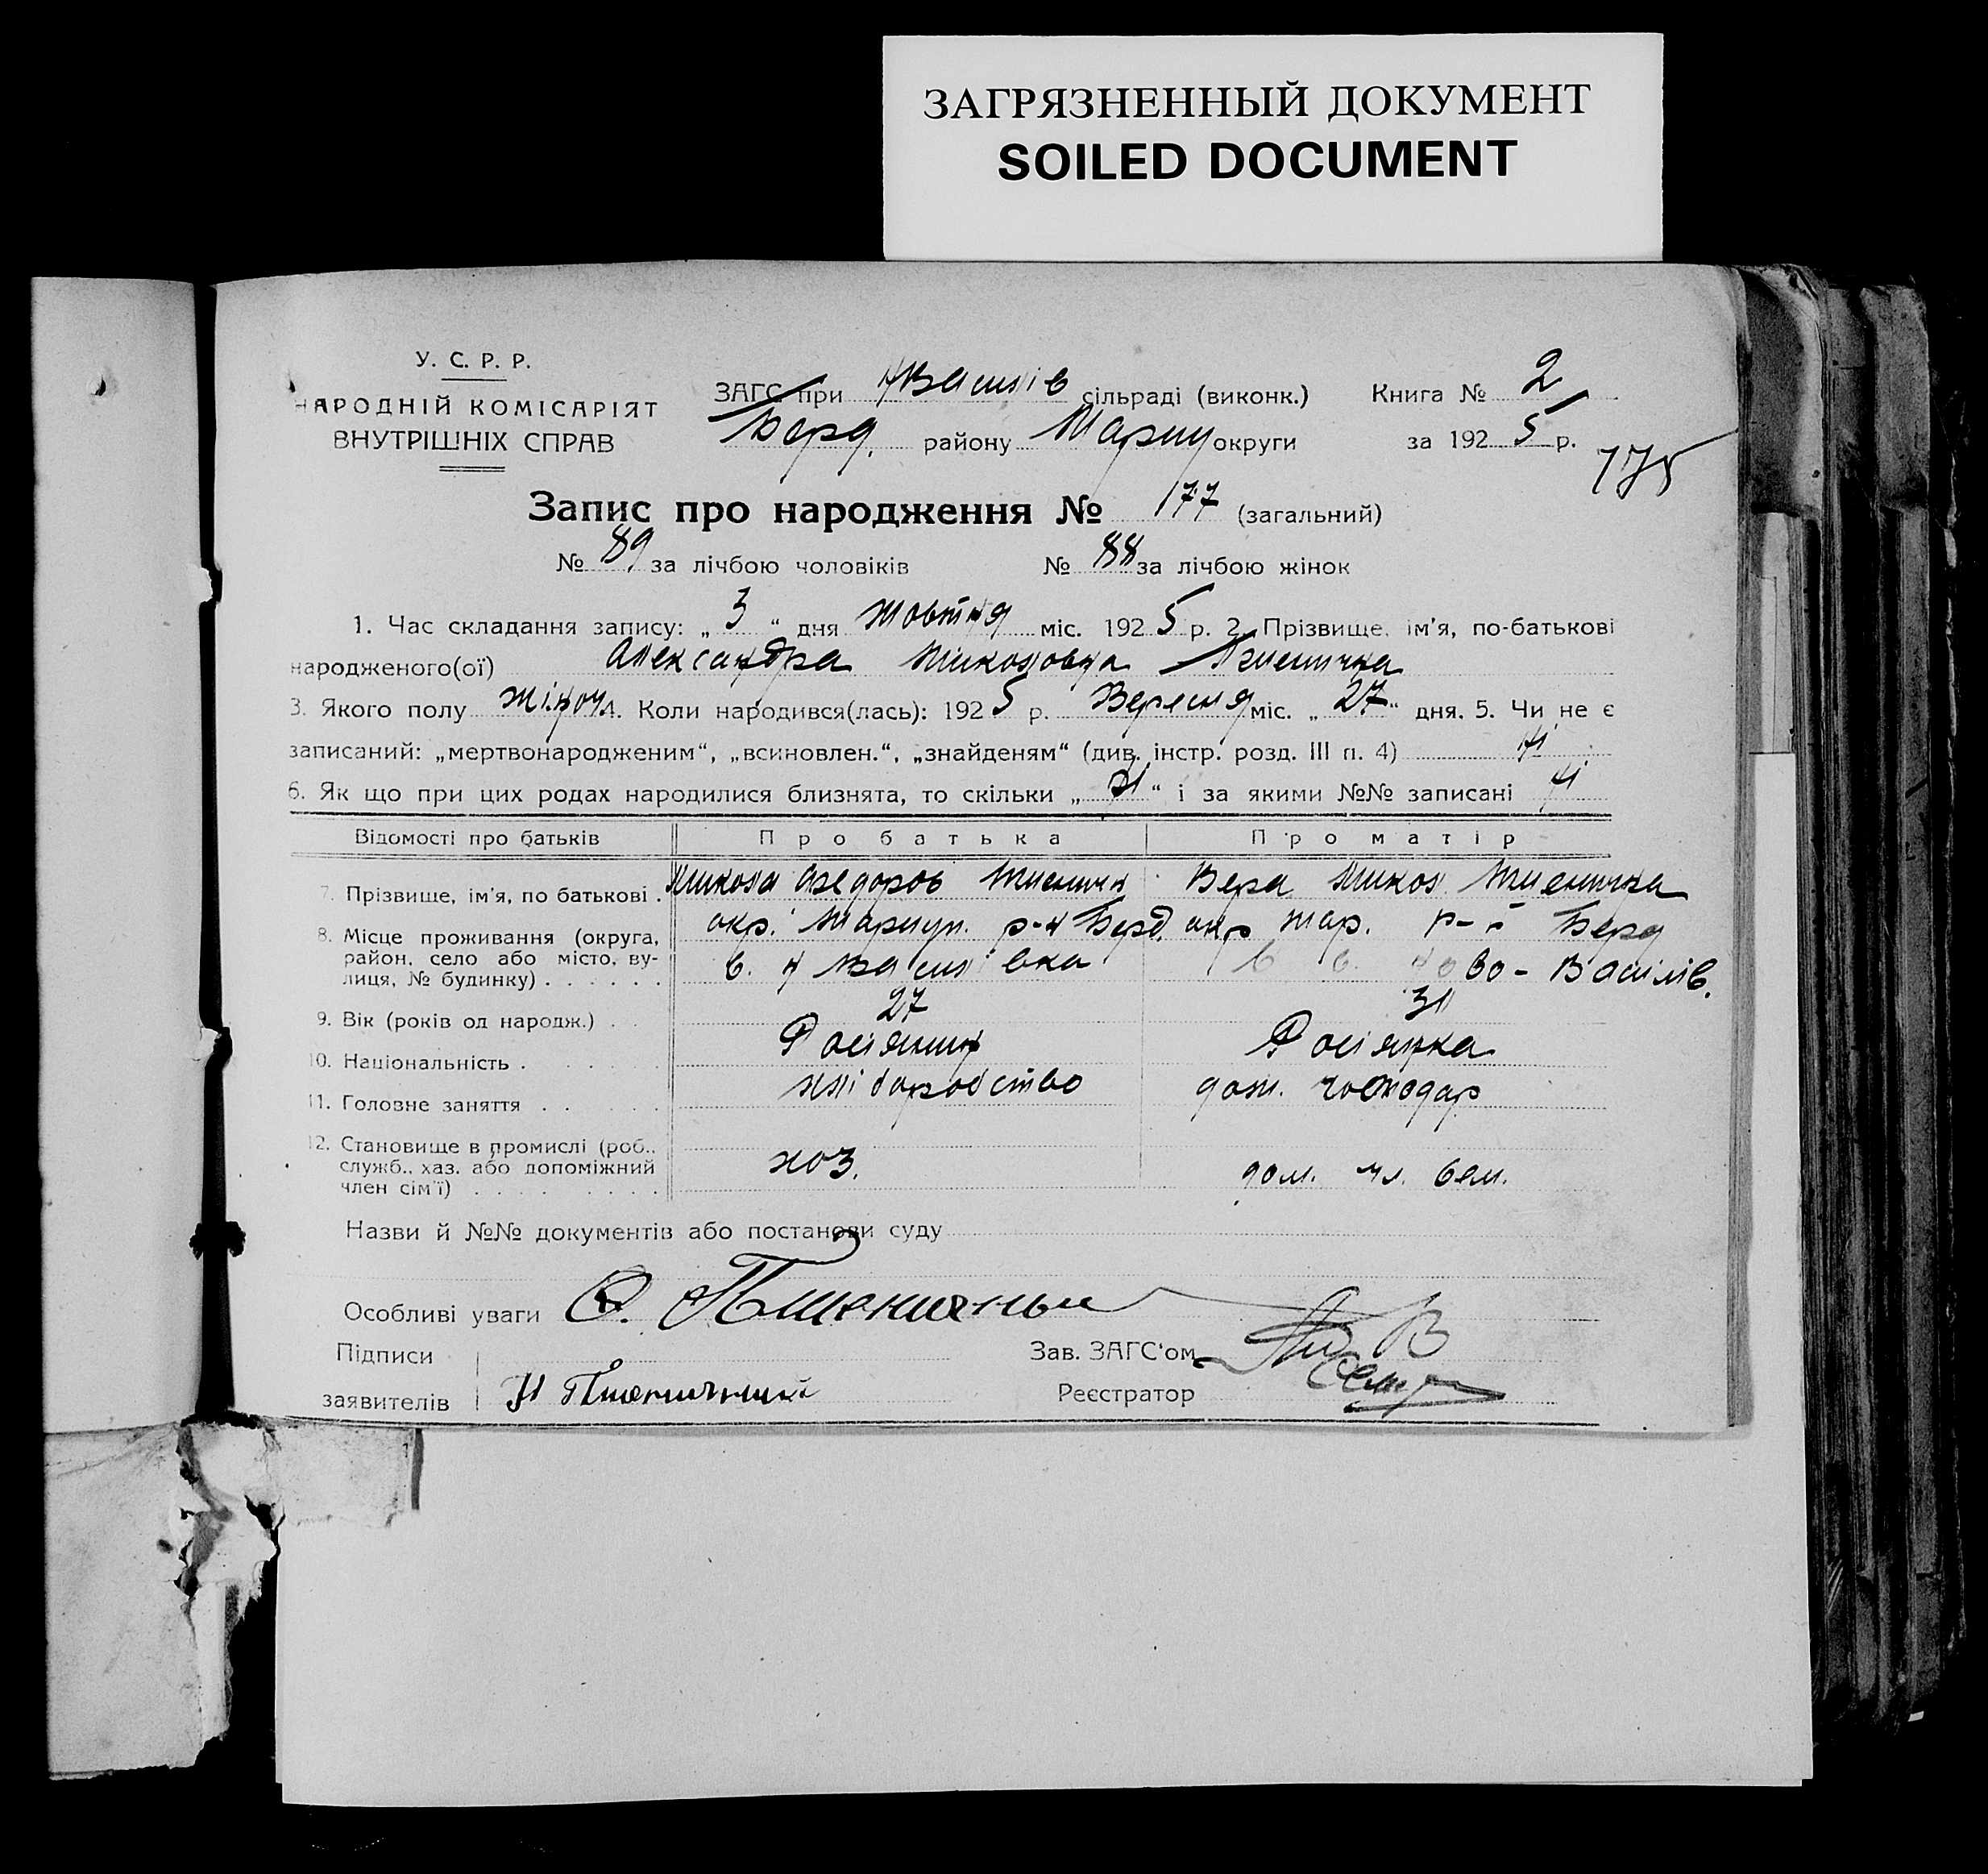 ЗАГРЯЗНЕННЫЙ ДОКУМЕНТ
SOILED DOCUMENT
У. С. Р. Р.
НАРОДНІЙ КОМІСАРІЯТ
ВНУТРІШНІХ СПРАВ
ЗАГС при НВасилів сільраді (виконк.) Книга № 2
Берд. району Маріуп округи за 1925 р.
175
Запис про народження № 177 (загальний)
№ 89 за лічбою чоловіків № 88 за лічбою жінок
1. Час складання запису: „ 3 “ дня Жовтня міс. 1925 р. 2. Прізвище, ім'я, по-батькові
народженого(ої) Александра Миколовна Пшенична
3. Якого полу жіноч. 4. Коли народився(лась): 1925 р. Вересня міс. „ 27 “ дня. 5. Чи не є
записаний: „мертвонародженим“, „всиновлен.“, „знайденям“ (див. інстр. розд. III п. 4) ні
6. Як що при цих родах народилися близнята, то скільки „ “ і за якими №№ записані ні
Відомості про батьків Про батька Про матір
7. Прізвище, ім'я, по батькові . Микола Федоров Пшеничн Вера Микол. Пшенична
8. Місце проживання (округа, район, село або місто, вулиця, № будинку) . . . . . . окр. Маріуп. р-н Берд. окр Мар. р-н Берд
с. Н Василівка с. Ново-Василів.
9. Вік (років од народж.) . . 27 31
10. Національність . . . . . . Росіянин Росіянка
11. Головне заняття . . . . . хліборобство дом. господар
12. Становище в промислі (роб.,
служб., хаз. або допоміжний
член сім'ї) . . . . . . . . . хоз. дом. чл. сем.
Назви й №№ документів або постанови суду
Особливі уваги
Підписи
заявителів Н Пшеничний
Зав. ЗАГС'ом
Реєстратор